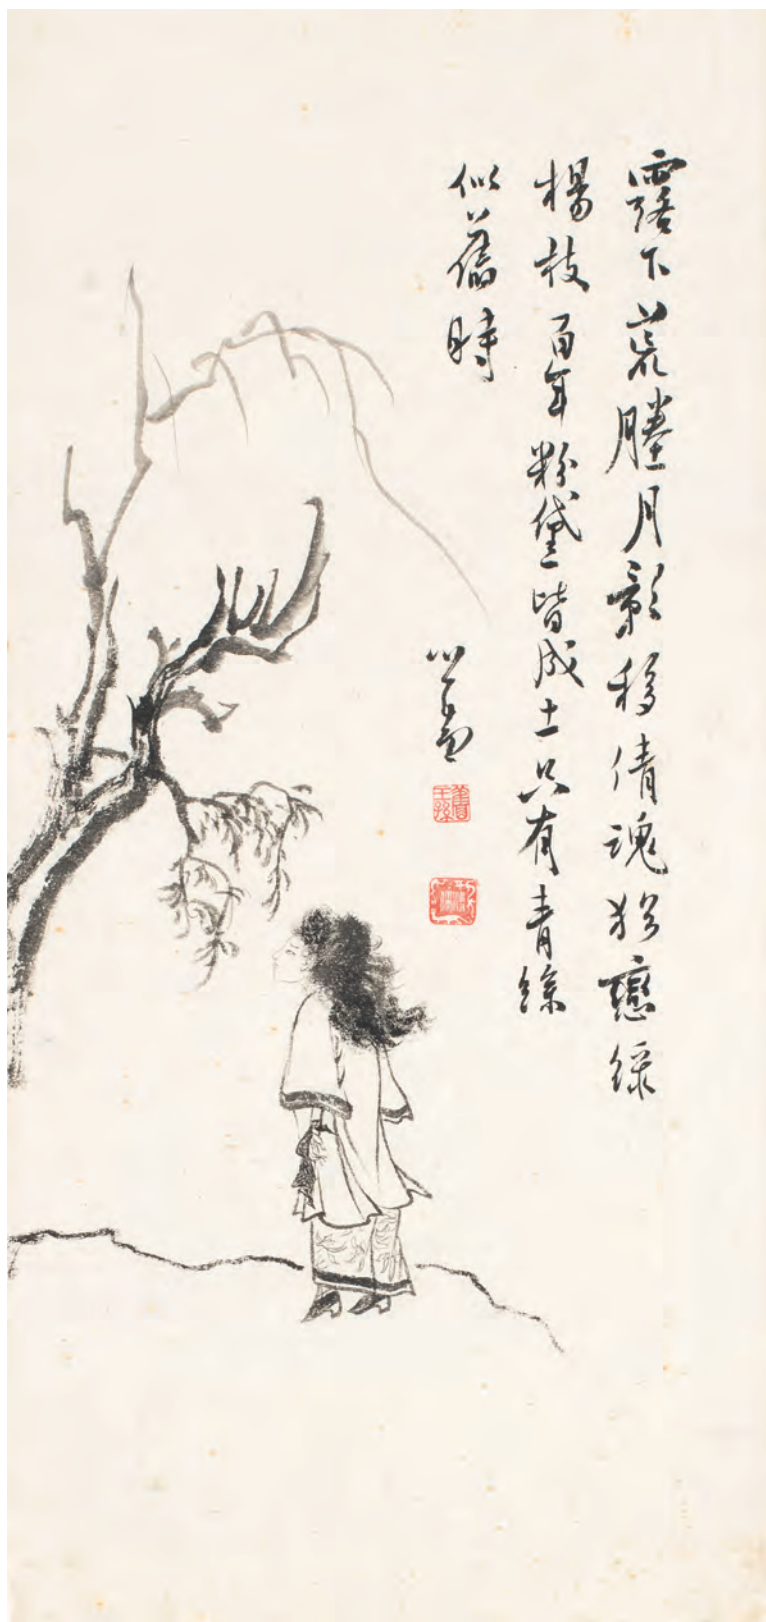 露下荒塍月影移倩魂猶戀綠
楊枝百年粉黛皆成土只有青絲
似舊時
心畬
舊王孫